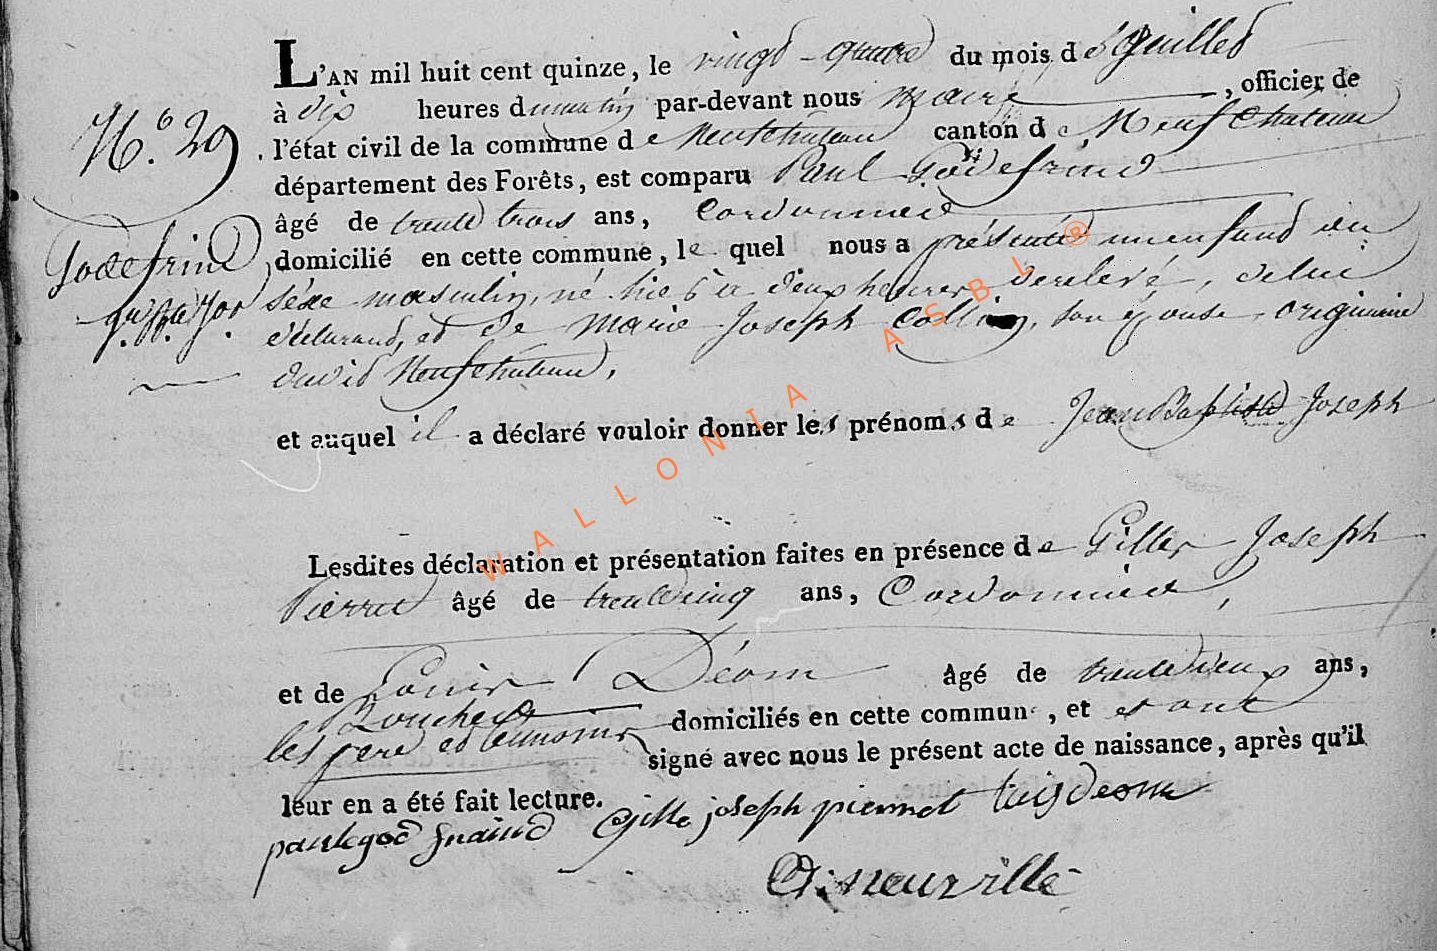 L'AN mil huit cent quinze, le vingt-quatre du mois de Juillet
à dix heures du matin par-devant nous maire, officier de
N.° 29
l'état civil de la commune de Neufchateau canton de Neufchateau
département des Forêts, est comparu Paul Godefrind
âgé de trente trois ans, Cordonnier
Godefrind
domicilié en cette commune, lequel nous a présenté un enfant du
séxe masculin, né hier à deux heures de relevé, de lui
déclarant, et de Marie Joseph Collin, son épouse, originaire
dudit Neufchateau,
et auquel il a déclaré vouloir donner les prénoms de Jean Baptiste Joseph
Lesdites déclaration et présentation faites en présence de Gilles Joseph
Pierret âgé de trente cinq ans, Cordonnier,
et de Louis Déom âgé de trente deux ans,
Boucher domiciliés en cette commune, et et ont
les père et témoins signé avec nous le présent acte de naissance, après qu'il
leur en a été fait lecture.
paul god fraind Gille joseph pierret Louis deom
neuville
WALLONIA ASBL ®